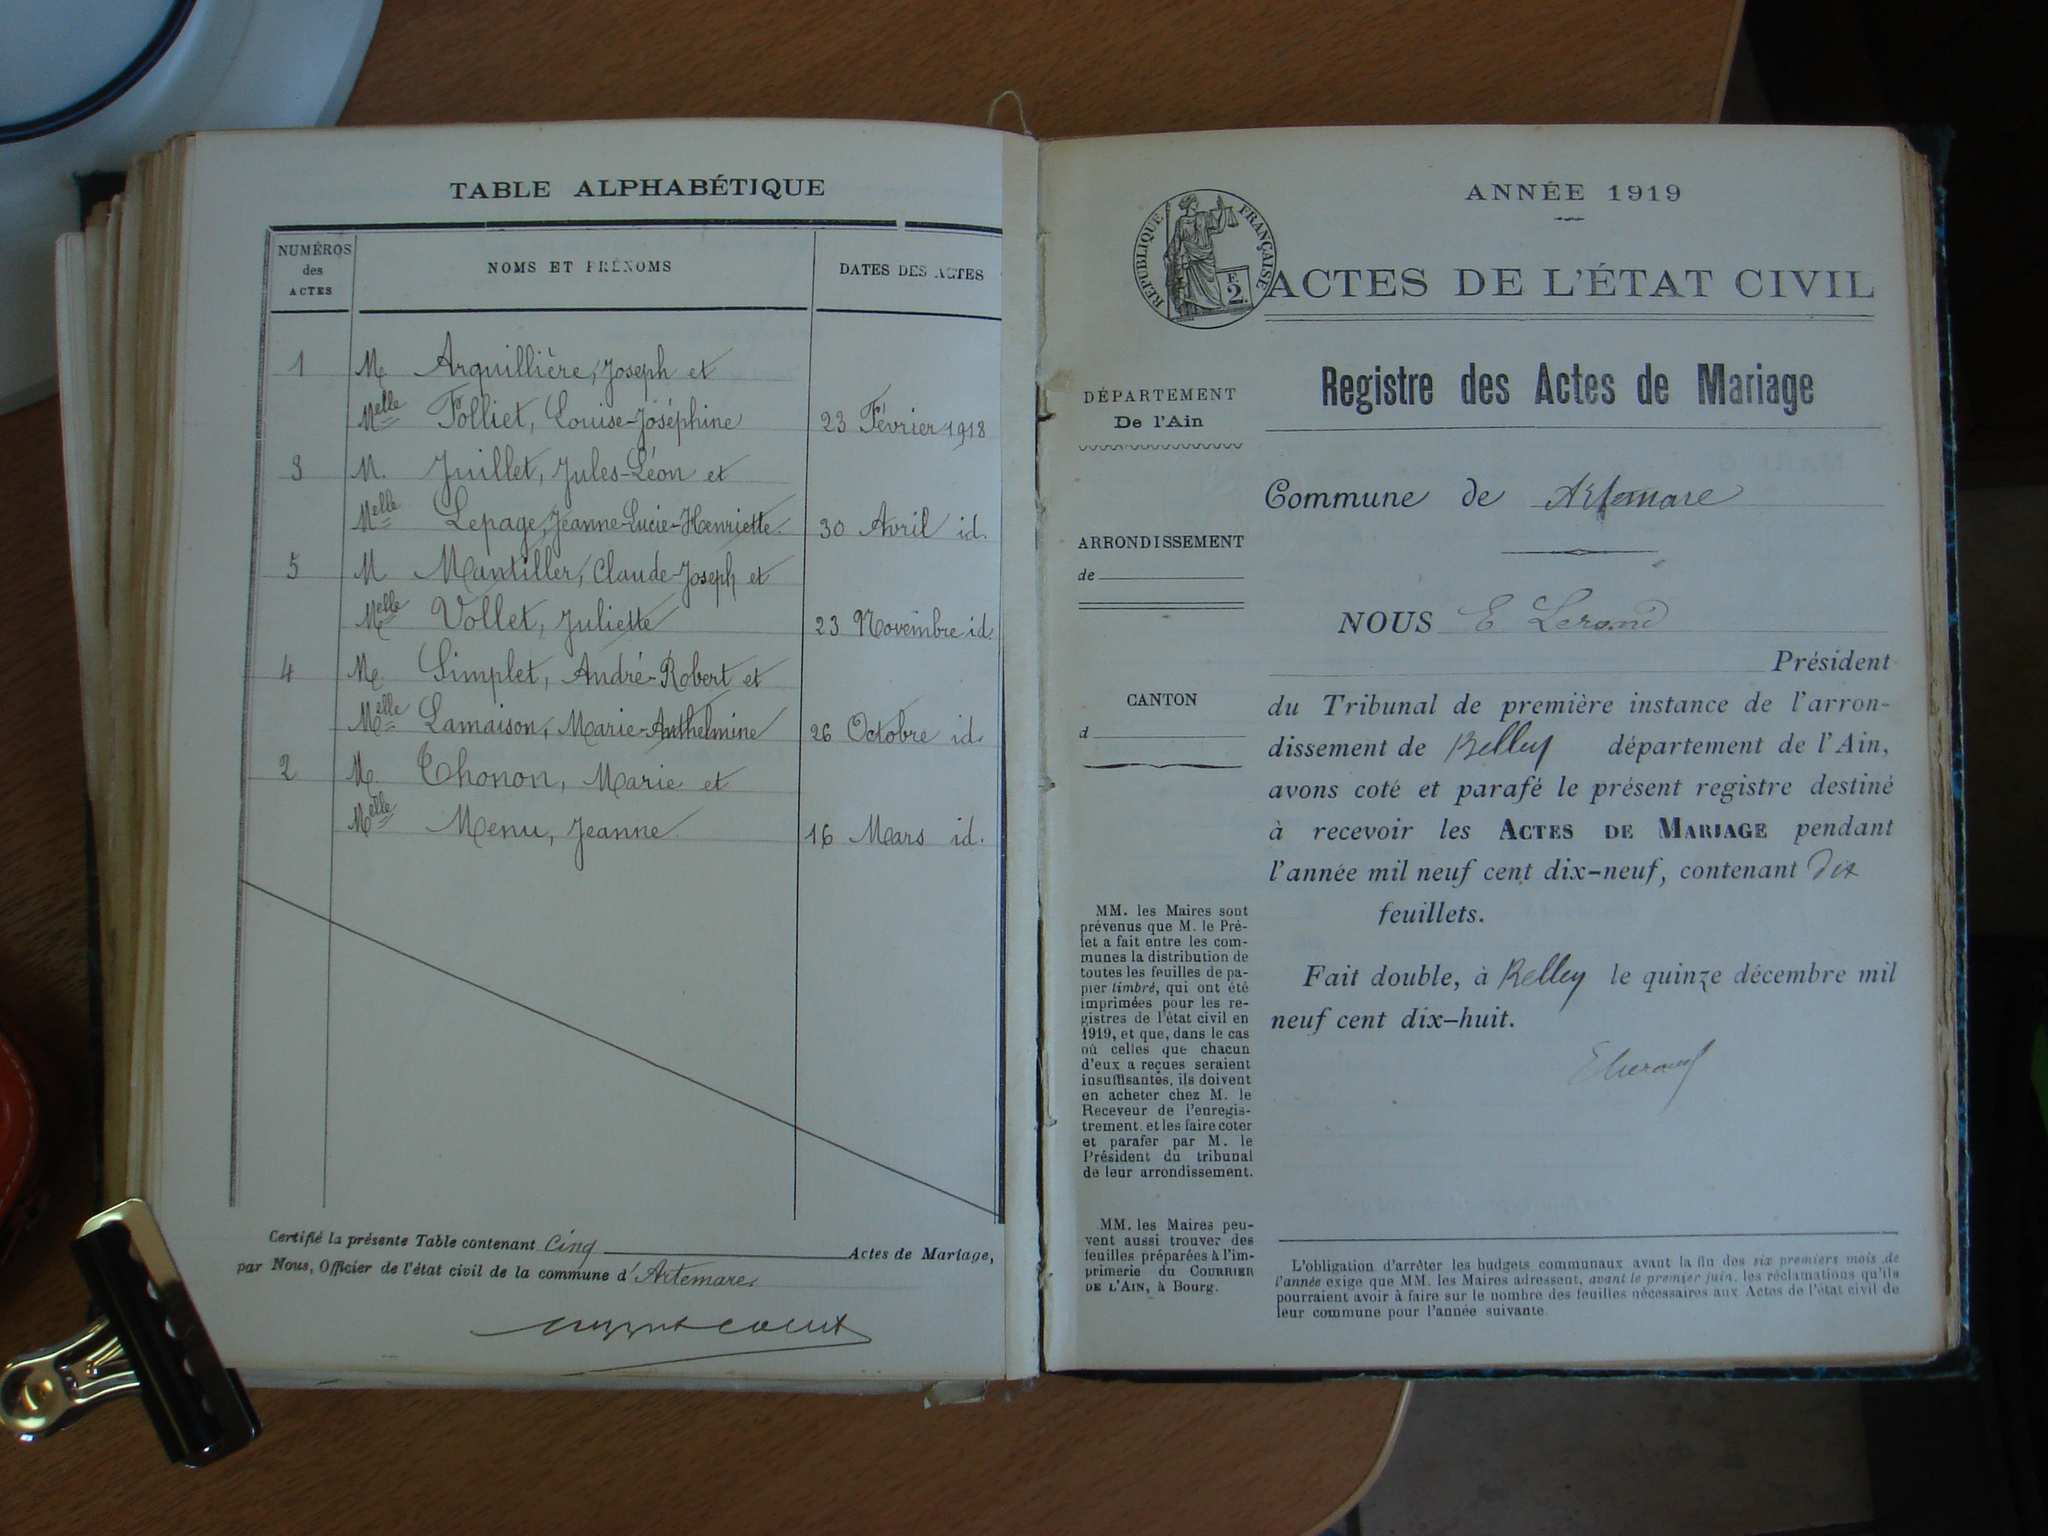 TABLE ALPHABÉTIQUE
NUMÉROS
des
ACTES
NOMS ET PRÉNOMS
DATES DES ACTES
1 M. Arquillière, Joseph et
Melle Folliet, Louise-Joséphine 23 Février 1918
3 M. Juillet, Jules-Léon et
Melle Lepage, Jeanne-Lucie-Henriette. 30 Avril id.
5 M. Mantiller, Claude-Joseph et
Melle Vollet, Juliette 23 Novembre id.
4 M. Simplet, André-Robert et
Melle Lamaison, Marie-Anthelmine 26 Octobre id.
2 M. Thonon, Marie et
Melle Menu, Jeanne. 16 Mars id.
Certifié la présente Table contenant Cinq Actes de Mariage,
par Nous, Officier de l'état civil de la commune d'Artemare.
ANNÉE 1919
RÉPUBLIQUE FRANÇAISE
F.
2.
ACTES DE L'ÉTAT CIVIL
Registre des Actes de Mariage
DÉPARTEMENT
De l'Ain
ARRONDISSEMENT
de
CANTON
d
MM. les Maires sont
prévenus que M. le Pré-
fet a fait entre les com-
munes la distribution de
toutes les feuilles de pa-
pier timbré, qui ont été
imprimées pour les re-
gistres de l'état civil en
1919, et que, dans le cas
où celles que chacun
d'eux a reçues seraient
insuffisantes, ils doivent
en acheter chez M. le
Receveur de l'enregis-
trement. et les faire coter
et parafer par M. le
Président du tribunal
de leur arrondissement.
MM. les Maires peu-
vent aussi trouver des
feuilles préparées à l'im-
primerie du COURRIER
DE L'AIN, à Bourg.
Commune de Artemare
NOUS E.
Président
du Tribunal de première instance de l'arron-
dissement de Belley département de l'Ain,
avons coté et parafé le présent registre destiné
à recevoir les ACTES DE MARIAGE pendant
l'année mil neuf cent dix-neuf, contenant dix
feuillets.
Fait double, à Belley le quinze décembre mil
neuf cent dix-huit.
L'obligation d'arrêter les budgets communaux avant la fin des six premiers mois de
l'année exige que MM. les Maires adressent, avant le premier juin, les réclamations qu'ils
pourraient avoir à faire sur le nombre des feuilles nécessaires aux Actes de l'état civil de
leur commune pour l'année suivante.